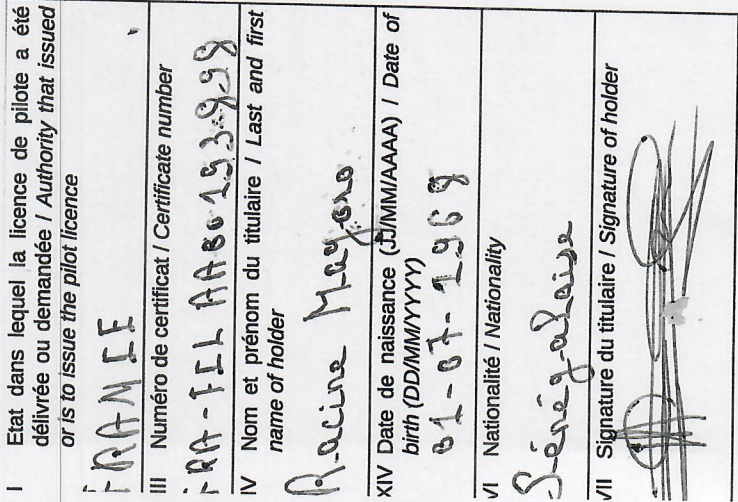 I Etat dans lequel la licence de pilote a été
délivrée ou demandée / Authority that issued
or is to issue the pilot licence
FRANCE
III Numéro de certificat / Certificate number
IV Nom et prénom du titulaire / Last and first
name of holder
Racine
XIV Date de naissance (JJ/MM/AAAA) / Date of
birth (DD/MM/YYYY)
01-07-1969
VI Nationalité / Nationality
Sénégalaise
VII Signature du titulaire / Signature of holder